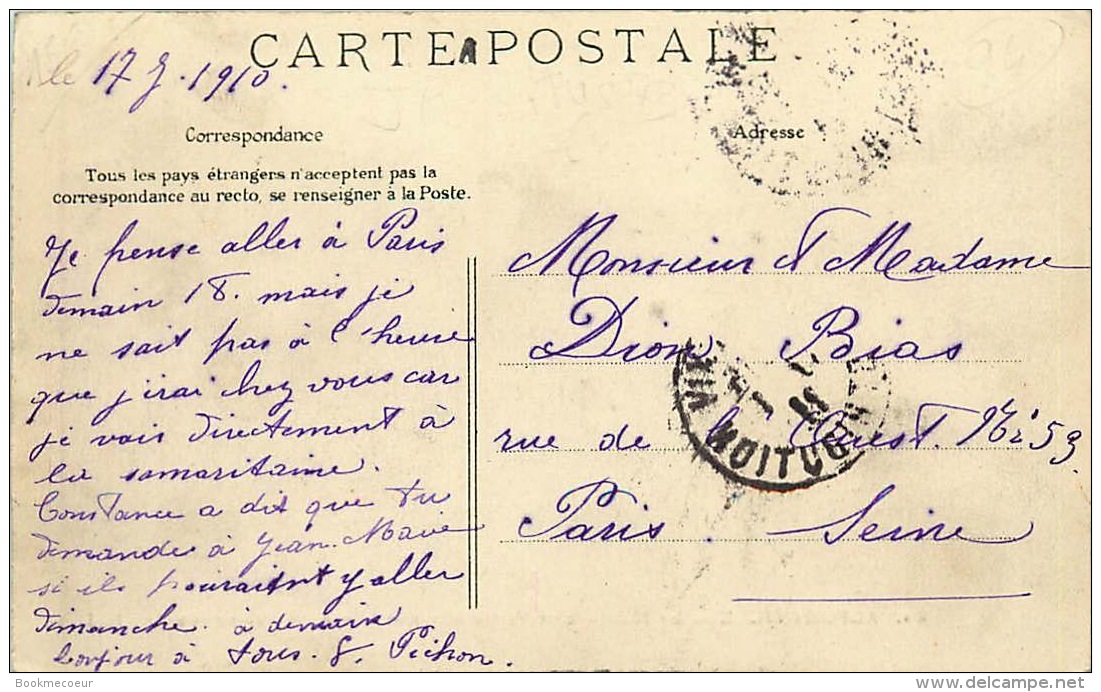 CARTE POSTALE
le 17 J. 1910.
Correspondance
Tous les pays étrangers n'acceptent pas la
correspondance au recto, se renseigner à la Poste.
Je pense aller à Paris
demain 18. mais je
ne sait pas à l'heure
que j'irai chez vous car
je vais directement à
la samaritaine.
Constance a dit que tu
demande à Jean. Marie
si ils pouraitnt y aller
dimanche. à demain
bonjour à tous. Pichon.
Adresse
Monsieur et Madame
Dion Bias
rue de l'Ouest. No 53
Paris. Seine
Bookmecoeur
www.delcampe.net